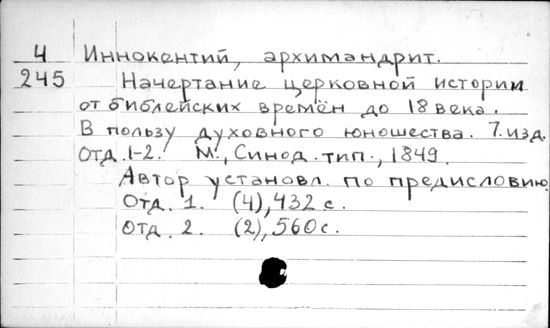 4 Иннокентий, архимандрит.
245 Начертание церковной истории
от библейских времён до 18 века.
В пользу духовного юношества. 7. изд.
Отд. 1-2. М., Синод. тип., 1849.
Автор установл. по предисловию
Отд. 1. (4), 432 с.
Отд. 2. (2), 560 с.